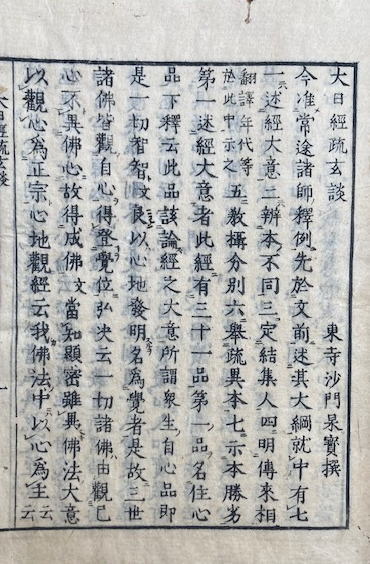 大日經疏玄談
東寺沙門杲寳撰
今准常途諸師釋例先於文前述其大綱就中有七
一述經大意二辨本不同三定結集人四明傳來相
翻譯年代等
於此中示之
五教攝分別六舉疏異本七示本勝劣
第一述經大意者此經有三十一品第一品名住心
品下釋云此品該論經之大意所謂衆生自心品即
是一切智智文良以心地發明名爲覺者是故三世
諸佛皆觀自心得登覺位弘决云一切諸佛由觀己
心不異佛心故得成佛文當知顯密雖異佛法大意
以觀心爲正宗心地觀經云我佛法中以心爲主云云
大日經疏玄談
一